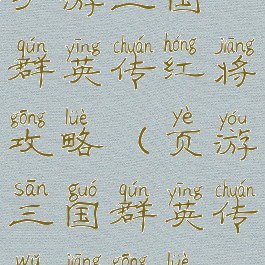 qún yīng chuán hóng jiāng
群英传红将
gōng lüè yè yóu
攻略（页游
sān guó qún yīng chuán
三国群英传
wǔ jiāng gōng lüè